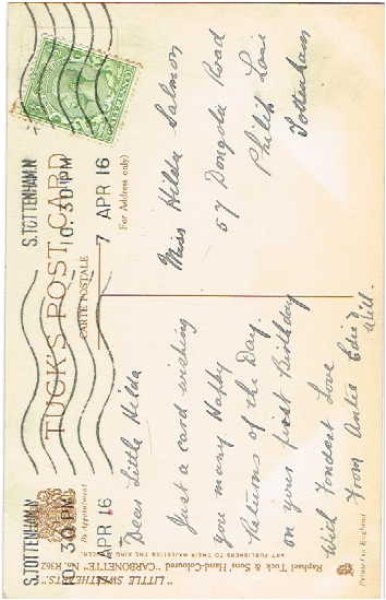 S.TOTTENHAM
10.30PM
7 APR 16
S.TOTTENHAM
10.30PM
APR 16
TUCK'S POST CARD
CARTE POSTALE
(For Address only)
By Appointment
Dear Little Hilda
Just a card wishing
you many Happy
Returns of the Day.
on your first Birthday
With Fondest Love
from Auntie Edie &
Will.
Miss Hilda Salmon
57 Dongola Road
Philip Lane
Tottenham
"LITTLE SWEETHEARTS."
Raphael Tuck & Sons Hand-Coloured "CARBONETTE" No. R362
ART PUBLISHERS TO THEIR MAJESTIES THE KING
Printed in England